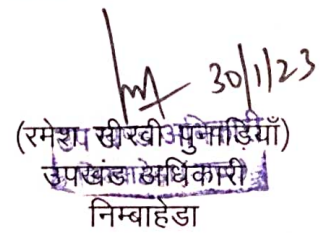 30/1/23
(रमेश सीरवी पुनाड़ियाँ)
उपखंड अधिकारी
निम्बाहेडा